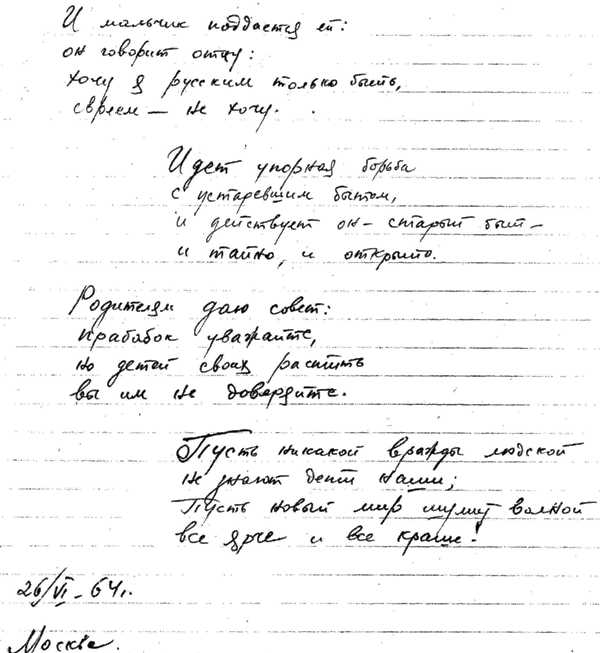 И мальчик поддается ей:
он говорит отцу:
хочу я русским только быть,
евреем — не хочу.
Идет упорная борьба
с устаревшим бытом,
и действует он – старый быт –
и тайно, и открыто.
Родителям даю совет:
прабабок уважайте,
но детей своих растить
вы им не доверяйте.
Пусть никакой вражды людской
не знают дети наши;
Пусть новый мир шумит волной
все ярче и все краше!
26/VI – 64г.
Москва.